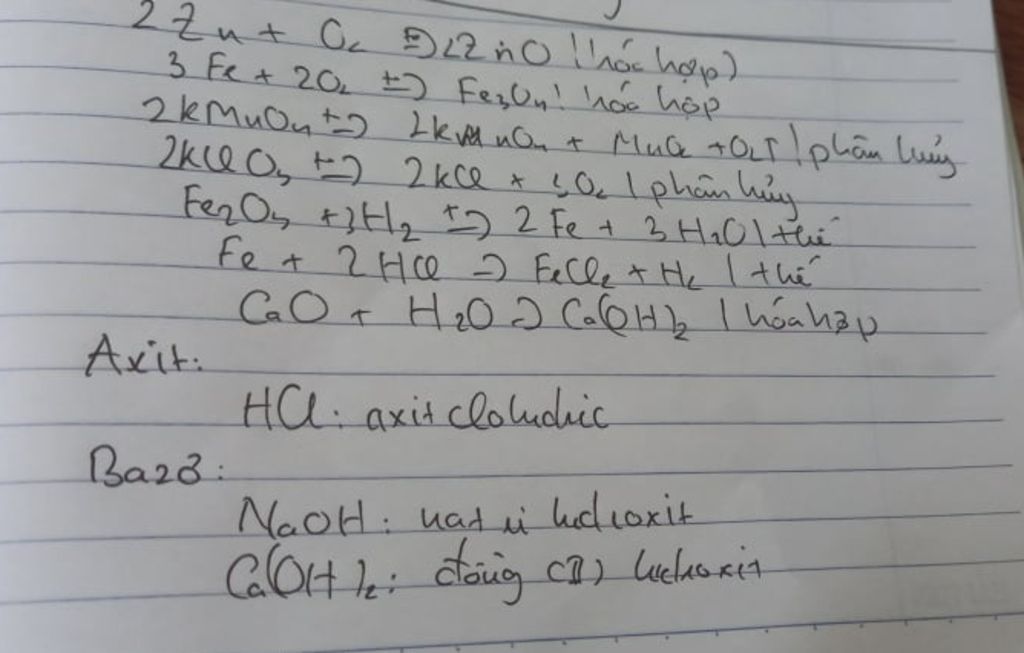 2Zn + O₂ t⇒ 2ZnO (hóa hợp)
3Fe + 2O₂ t⇒ Fe₃O₄ | hóa hợp
2KMnO₄ t⇒ + MnO₂ + O₂↑ | phân hủy
2KClO₃ t⇒ 2KCl + 3O₂ | phân hủy
Fe₂O₃ + 3H₂ t⇒ 2Fe + 3H₂O | thế
Fe + 2HCl ⇒ FeCl₂ + H₂ | thế
CaO + H₂O ⇒ Ca(OH)₂ | hóa hợp
Axit:
HCl: axit clohidric
Bazơ:
NaOH: natri hidroxit
Ca(OH)₂: đồng (II) hidroxit